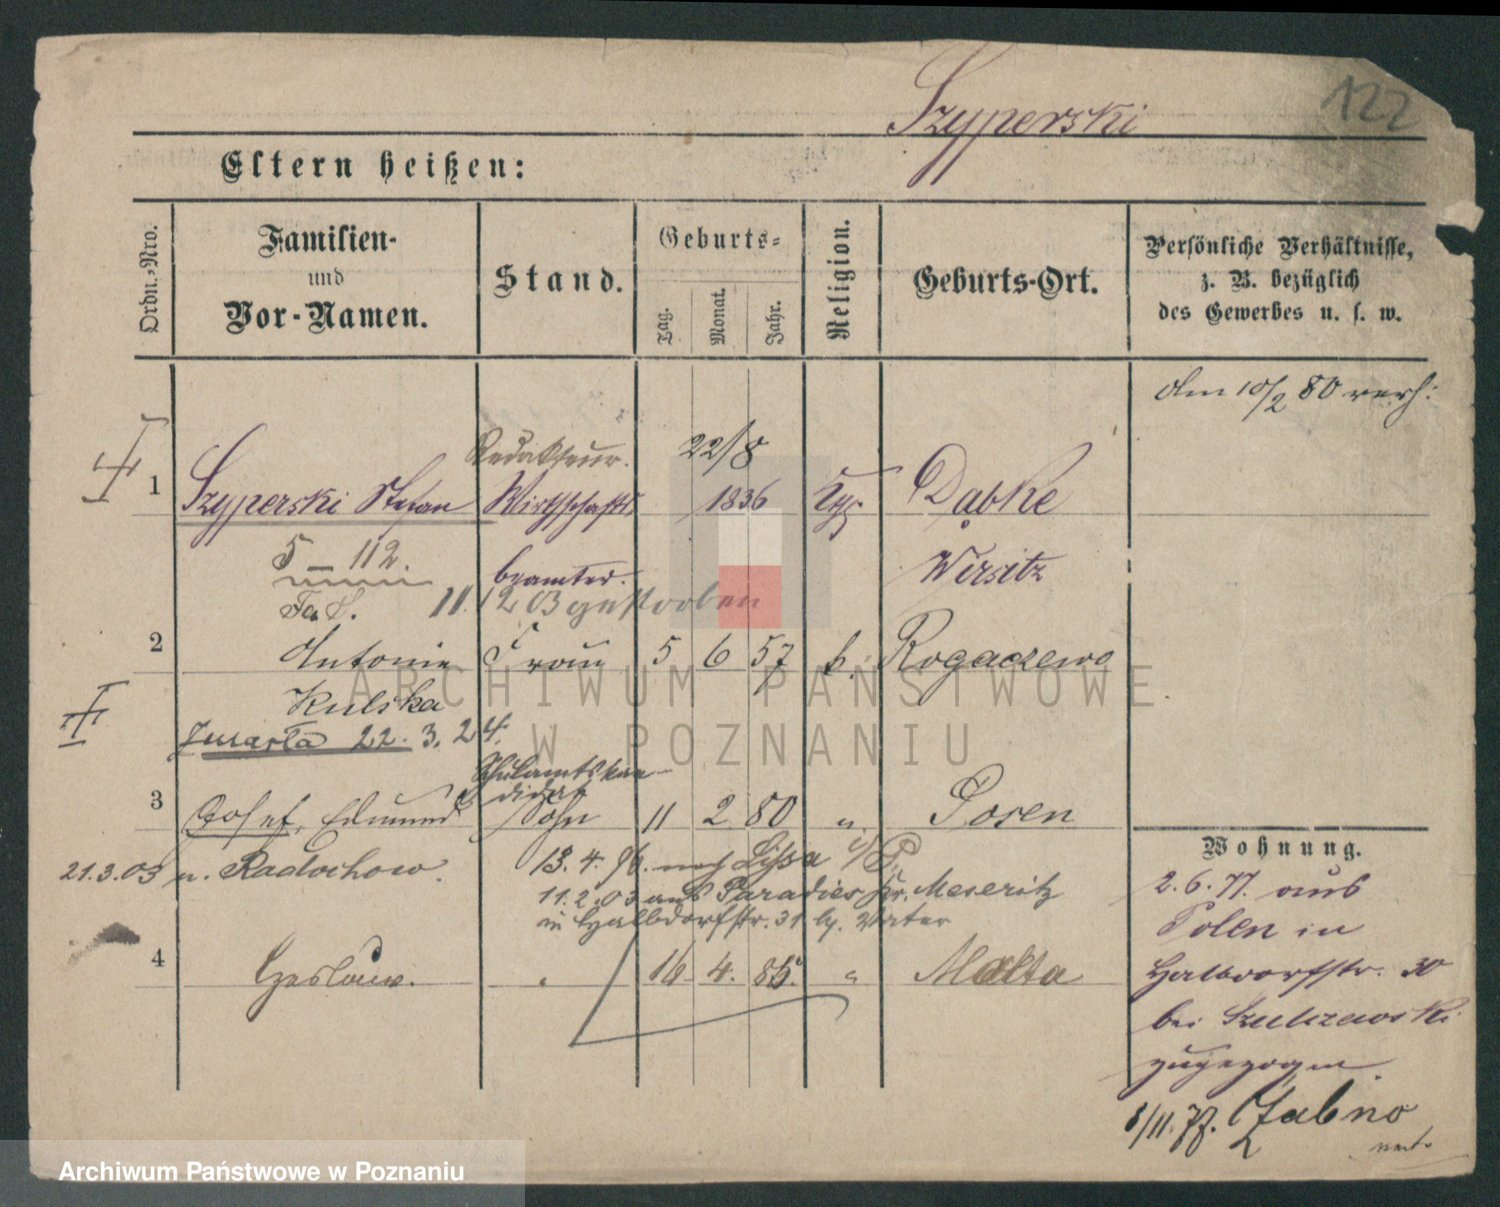 Szyperski
122
Eltern heißen:
Ordn.-Nro.
Familien-
und
Vor-Namen.
Stand.
Geburts-
Tag.
Monat.
Jahr.
Religion.
Geburts-Ort.
Persönliche Verhältnisse,
z. B. bezüglich
des Gewerbes u. s. w.
den 10/2 80 verh:
Redakteur. 22/8
1 Szyperski Stefan Wirthschafts 1836 Dąbke
5 – 112. beamter. Wirsitz
11. 12 03 gestorben
2 Antonie Frau 5 6 57 k. Rogaczewo
Kulska
Zmarła 22. 3. 24.
Schulamtskan
didat
3 Josef, Edmund Sohn 11 2 80 " Posen
21.3.03 n. Radochow. 13. 4. 96. nach Lissa i/P.
11.2.03 aus Paradies Kr. Meseritz
in Halbdorfstr. 31 b. Vater
4 Czeslaus. " 16. 4. 85. " Malta
Wohnung.
2. 6. 77. aus
Polen in
Halbdorfstr. 30
bei
zugezogen.
Zabno
ARCHIWUM PAŃSTWOWE
W POZNANIU
Archiwum Państwowe w Poznaniu